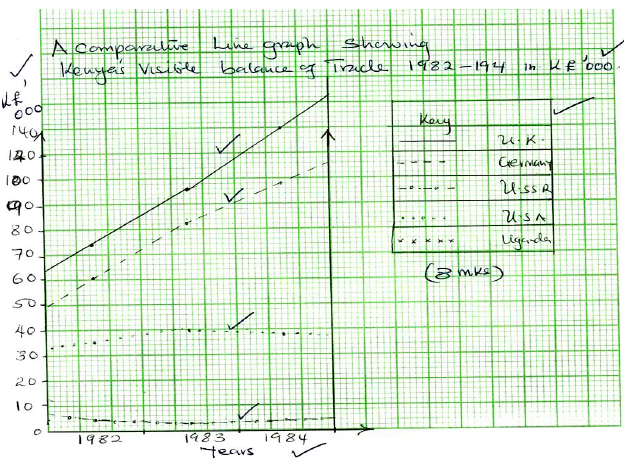 A Comparative Line graph Showing
Kenya's Visible balance of Trade 1982-194 in K£'000
K£'
000
140
120
100
90
80
70
60
50
40
30
20
10
0
1982 1983 1984
Years
Key
U.K.
Germany
USSR
USA
Uganda
(8 mks)